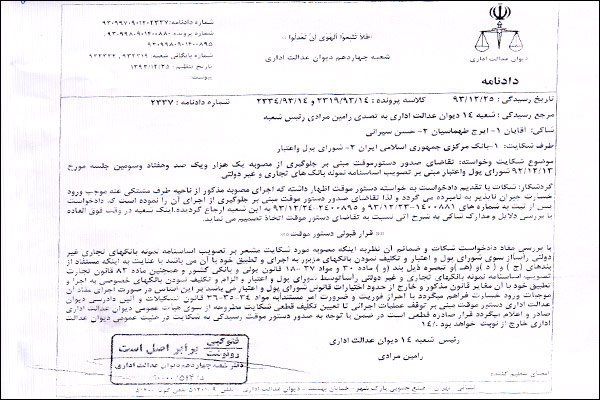 «فلا تتبعوا الهوی ان تعدلوا»
شعبه چهاردهم دیوان عدالت اداری
شماره دادنامه: ۹۳۰۹۹۷۰۹۰۱۴۰۲۳۳۷
شماره پرونده: ۹۳۰۹۹۸۰۹۰۱۴۰۰۸۸۰
۹۳۰۹۹۸۰۹۰۱۴۰۰۸۹۵
شماره بایگانی شعبه: ۹۳۲۳۱۹، ۹۳۲۳۳۴
تاریخ تنظیم: ۱۳۹۳/۱۲/۲۵
پیوست:
دیوان عدالت اداری
دادنامه
تاریخ رسیدگی: ۹۳/۱۲/۲۵ کلاسه پرونده: ۲۳۱۹/۹۳/۱۴ و ۲۳۳۴/۹۳/۱۴ شماره دادنامه: ۲۳۳۷
مرجع رسیدگی: شعبه ۱۴ دیوان عدالت اداری به تصدی رامین مرادی رئیس شعبه
شاکی: آقایان ۱- ایرج طهماسبیان ۲- حسن سیرانی
طرف شکایت: ۱-بانک مرکزی جمهوری اسلامی ایران ۲- شورای پول و اعتبار
موضوع شکایت و خواسته: تقاضای صدور دستور موقت مبنی بر جلوگیری از مصوبه یک هزار و یک صد و هفتاد و سومین جلسه مورخ
۹۲/۱۲/۱۳ شورای پول و اعتبار مبنی بر تصویب اساسنامه نمونه بانک های تجاری و غیر دولتی
گردشکار: شکات با تقدیم دادخواست به خواسته دستور موقت اظهار داشته که اجرای مصوبه مذکور از ناحیه طرف مشتکی عنه موجب ورود
خسارت جبران ناپذیر به نامبرده می گردد و لذا تقاضای صدور دستور موقت مبنی بر جلوگیری از اجرای آن را نموده است که دادخواست
پس از ثبت به شماره های ۱۴۰۰۸۸۱-۹۳/۱۲/۲۳ و ۱۴۰۰۸۹۵-۹۳/۱۲/۲۴ به این شعبه ارجاع گردیده، اینک شعبه در وقت فوق العاده
با بررسی دلایل و مدارک شاکی به شرح آتی نسبت به تقاضای دستور موقت اتخاذ تصمیم می نماید.
« قرار قبولی دستور موقت »
با بررسی مفاد دادخواست شکات و ضمائم آن نظر به اینکه مصوبه مورد شکایت مشعر بر تصویب اساسنامه نمونه بانکهای تجاری غیر
دولتی راساً از سوی شورای پول و اعتبار و تکلیف نمودن بانکهای مزبور به اجرای و تطبیق خود با آن می باشد با عنایت به اینکه مستفاد از
بندهای (ج) و (د) و (هـ) و تبصره ذیل بند (و) ماده ۳۰ و مواد ۳۷-۱۸ قانون پولی و بانکی کشور و همچنین ماده ۸۳ قانون تجارت
تصویب اساسنامه نمونه بانکهای تجاری و غیر دولتی راساً توسط شورای پول و اعتبار و الزام و تکلیف نمودن بانکهای خصوصی به اجرا و
تطبیق خود با آن مغایر قانون مذکور و خارج از حدود اختیارات قانونی شورای پول و اعتبار می باشد
موجبات ورود خسارت فراهم میگردد با احراز فوریت و ضرورت امر مستندا به مواد ۳۴-۳۵-۳۶ قانون تشکیلات و آئین دادرسی دیوان
عدالت اداری دستور موقت مبنی بر توقف عملیات اجرائی تا تعیین تکلیف قطعی شکایت مطروحه از سوی هیات عمومی دیوان عدالت اداری
صادر و اعلام میگردد قرار صادره قطعی است در ضمن با توجه به صدور دستور موقت رسیدگی به شکایت در هیئت عمومی دیوان عدالت
اداری خارج از نوبت خواهد بود. /۱۴
رئیس شعبه ۱۴ دیوان عدالت اداری
رامین مرادی
فتوکپی
رونوشت
برابر اصل است
دفتر شعبه چهاردهم دیوان عدالت اداری